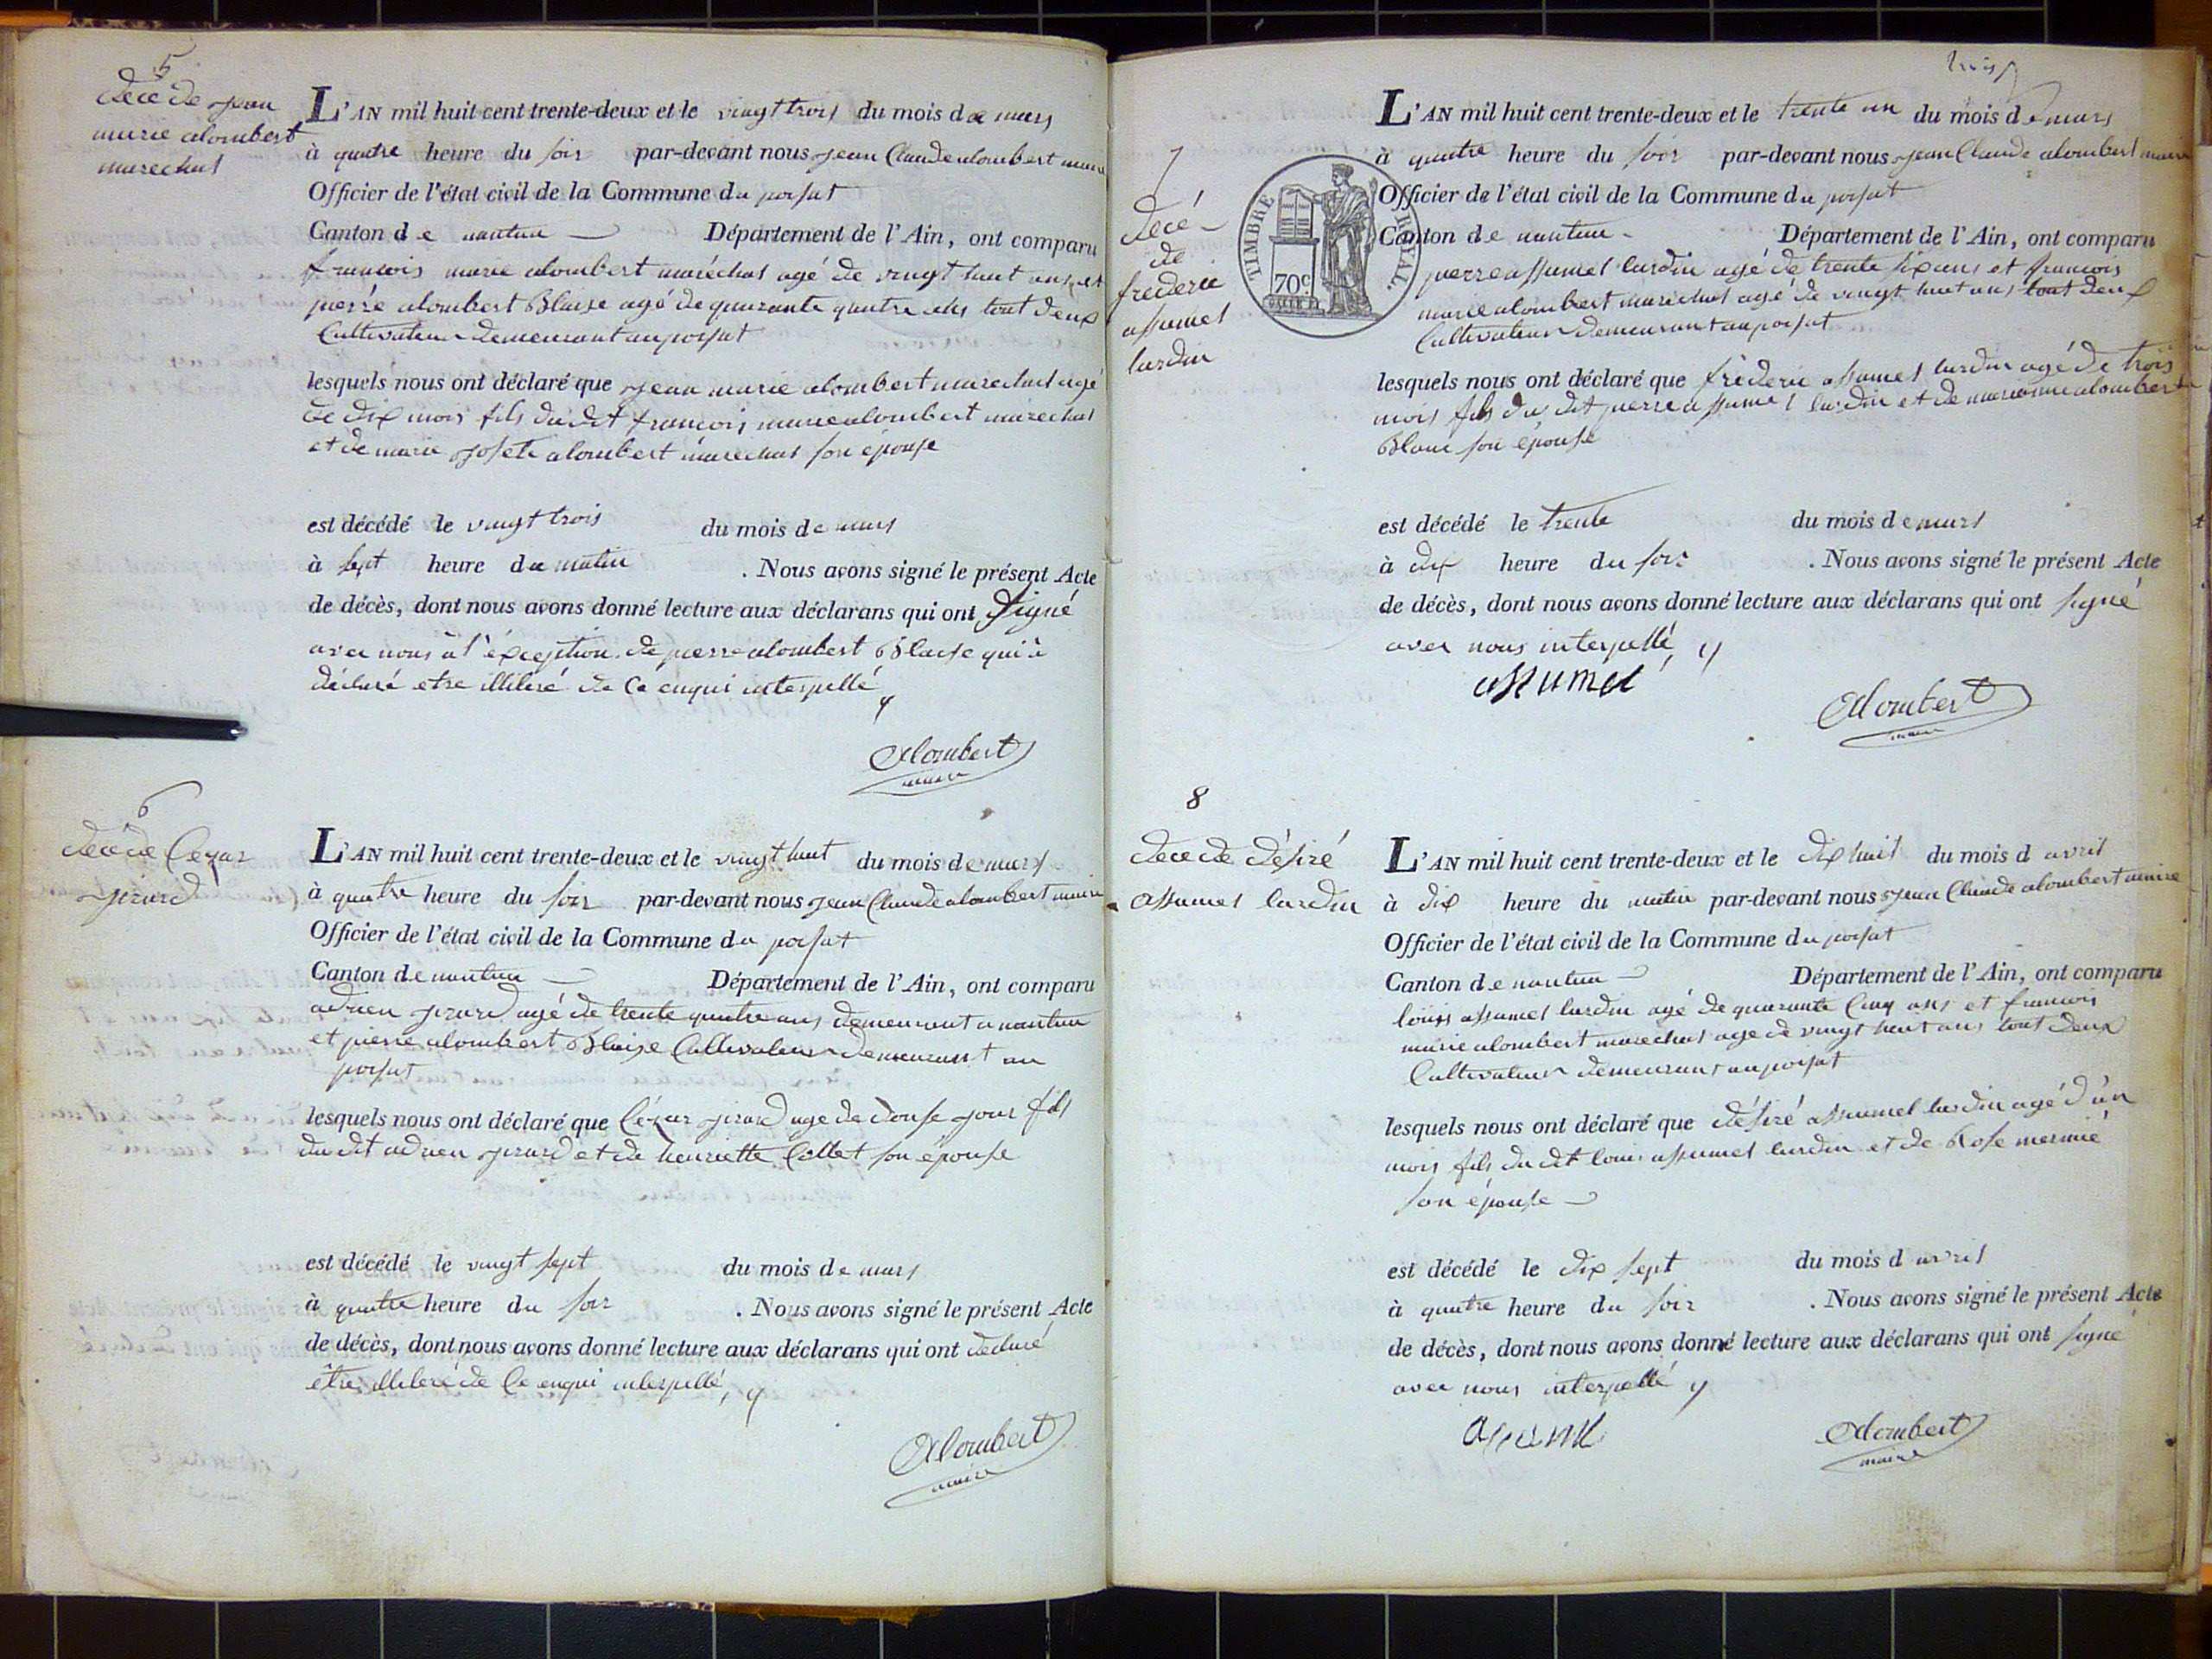 5
décè de jean
marie alombert
marechal
L'AN mil huit cent trente-deux et le vingt trois du mois de mars
à quatre heure du soir par-devant nous jean Claude alombert maire
Officier de l'état civil de la Commune du poisat
Canton de nantua Département de l'Ain, ont comparu
francois marie alombert maréchal agé de vingt huit ans et
pierre alombert Blaise agé de quarante quatre ans tout deux
Cultivateur demeurant au poisat
lesquels nous ont déclaré que jean marie alombert marechal agé
de dix mois fils du dit francois marie alombert marechal
et de marie josete alombert marechal son épouse
est décédé le vingt trois du mois de mars
à sept heure du matin . Nous avons signé le présent Acte
de décès, dont nous avons donné lecture aux déclarans qui ont signé
avec nous à l'éxception de pierre alombert Blaise qui à
déclaré etre illiteré de ce enqui interpellé
Alombert
maire
6
décè de Cezar
girard
L'AN mil huit cent trente-deux et le vingt huit du mois de mars
à quatre heure du soir par-devant nous jean Claude alombert maire
Officier de l'état civil de la Commune du poisat
Canton de nantua Département de l'Ain, ont comparu
adrien girard agé de trente quatre ans demeurant a nantua
et pierre alombert Blaise Cultivateur demeurant au
poisat
lesquels nous ont déclaré que Cézar girard age de douse jour fils
du dit adrien girard et de henriette Collet son épouse
est décédé le vingt sept du mois de mars
à quatre heure du soir . Nous avons signé le présent Acte
de décès, dont nous avons donné lecture aux déclarans qui ont declaré
être illiteré de Ce enqui interpellé,
Alombert
maire
trois
7
décé
de
frederic
assumel
lurdin
TIMBRE ROYAL
70c
L'AN mil huit cent trente-deux et le trente un du mois de mars
à quatre heure du soir par-devant nous jean Claude alombert maire
Officier de l'état civil de la Commune du poisat
Canton de nantua Département de l'Ain, ont comparu
pierre assumel lurdin agé de trente six ans et francois
marie alombert marechal agé de vingt huit ans tout deux
Cultivateur demeurant au poisat
lesquels nous ont déclaré que fréderic assumel lurdin agé de trois
mois fils du dit pierre assumel lurdin et de marianne alombert
Blanc son épouse
est décédé le trente du mois de mars
à dix heure du soir . Nous avons signé le présent Acte
de décès, dont nous avons donné lecture aux déclarans qui ont signé
avec nous interpellé
assumel
Alombert
maire
8
décè de désiré
assumel lurdin
L'AN mil huit cent trente-deux et le dix huit du mois d avril
à dix heure du matin par-devant nous jean Claude alombert maire
Officier de l'état civil de la Commune du poisat
Canton de nantua Département de l'Ain, ont comparu
louis assumel lurdin agé de quarante Cinq ans et francois
marie alombert marechal age de vingt huit ans tout deux
Cultivateur demeurant au poisat
lesquels nous ont déclaré que désiré assumel lurdin agé d'ùn
mois fils du dit louis assumel lurdin et de Rose mermié
son épouse
est décédé le dix sept du mois d avril
à quatre heure du soir . Nous avons signé le présent Acte
de décès, dont nous avons donné lecture aux déclarans qui ont signé
avec nous interpellé
Alombert
maire